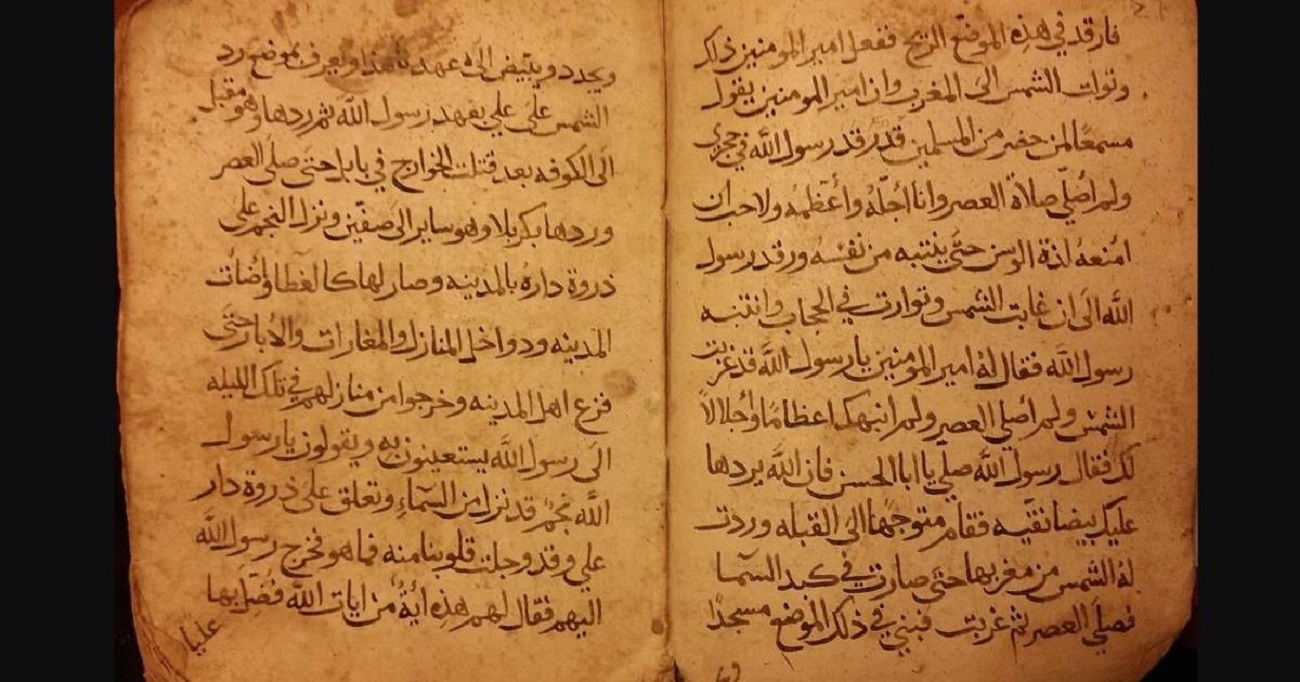 فارقد في هذه الموضع الزيح ففعل امير المومنين ذلك
وتوات الشمس الى المغرب وان امير المومنين يقول
مسمعًا لمن حضر من المسلمين قد رقد رسول الله في حجري
ولم اُصلّي صلاة العصر وانا اُجلّهُ وأُعَظّمهُ ولا احب ان
امنعهُ لذة الوسن حتى ينتبه من نفسه ورقد رسول
الله الى ان غابت الشمس وتوارت في الحجاب وانتبه
رسول الله فقال لهُ امير المومنين يا رسول الله قد غربت
الشمس ولم اُصلي العصر ولم انبهك اعظامًا واُجلالاً
لك فقال رسول الله صلي يا ابا الحسن فان الله يردها
عليك بيضا نقيه فقام متوجهًا الى القبله وردت
لهُ الشمس من مغربها حتى صارت في كبد السما
فصلى العصر ثم غربت فبني في ذلك الموضع مسجدًا
ويجدد ويبيض الى عهدنا هذا ويعرف بموضع رد
الشمس على علي بعهد رسول الله ثم ردها وهو مقبل
الى الكوفه بعد قتلت الخوارج في بابل حتى صلى العصر
وردها بكربلا وهو ساير الى صفّين ونزل النجم على
ذروة داره بالمدينه وصار لها كالغطا وأضأت
المدينه ودواخل المنازل والمغارات والابار حتى
فزع اهل المدينه وخرجوا من منازلهم في تلك الليله
الى رسول الله يستعينون به ويقولون يا رسول
الله نجمٌ قد نزل من السمآءِ وتعلق على ذروة دار
علي وقد وجلت قلوبنا منه فما هو فخرج رسول الله
اليهم فقال لهم هذه ايةٌ من ايات الله فُضّل بها
عليا